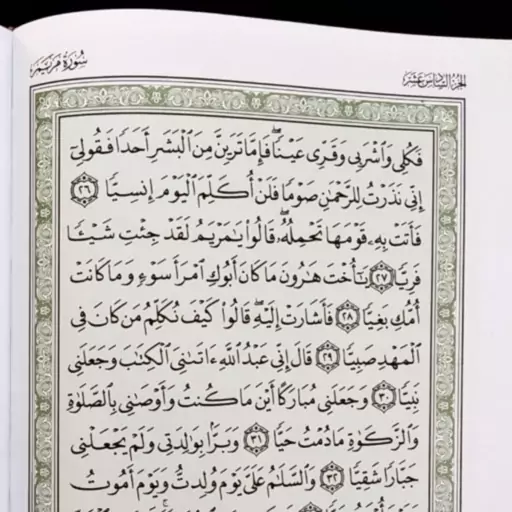 سُورَةُ مَرۡيَمَ
الجزء السادس عشر
فَكُلِي وَٱشۡرَبِي وَقَرِّي عَيۡنٗاۖ فَإِمَّا تَرَيِنَّ مِنَ ٱلۡبَشَرِ أَحَدٗا فَقُولِيٓ
إِنِّي نَذَرۡتُ لِلرَّحۡمَٰنِ صَوۡمٗا فَلَنۡ أُكَلِّمَ ٱلۡيَوۡمَ إِنسِيّٗا ٢٦
فَأَتَتۡ بِهِۦ قَوۡمَهَا تَحۡمِلُهُۥۖ قَالُواْ يَٰمَرۡيَمُ لَقَدۡ جِئۡتِ شَيۡـٔٗا
فَرِيّٗا ٢٧ يَٰٓأُخۡتَ هَٰرُونَ مَا كَانَ أَبُوكِ ٱمۡرَأَ سَوۡءٖ وَمَا كَانَتۡ
أُمُّكِ بَغِيّٗا ٢٨ فَأَشَارَتۡ إِلَيۡهِۖ قَالُواْ كَيۡفَ نُكَلِّمُ مَن كَانَ فِي
ٱلۡمَهۡدِ صَبِيّٗا ٢٩ قَالَ إِنِّي عَبۡدُ ٱللَّهِ ءَاتَىٰنِيَ ٱلۡكِتَٰبَ وَجَعَلَنِي
نَبِيّٗا ٣٠ وَجَعَلَنِي مُبَارَكًا أَيۡنَ مَا كُنتُ وَأَوۡصَٰنِي بِٱلصَّلَوٰةِ
وَٱلزَّكَوٰةِ مَا دُمۡتُ حَيّٗا ٣١ وَبَرَّۢا بِوَٰلِدَتِي وَلَمۡ يَجۡعَلۡنِي
جَبَّارٗا شَقِيّٗا ٣٢ وَٱلسَّلَٰمُ عَلَيَّ يَوۡمَ وُلِدتُّ وَيَوۡمَ أَمُوتُ